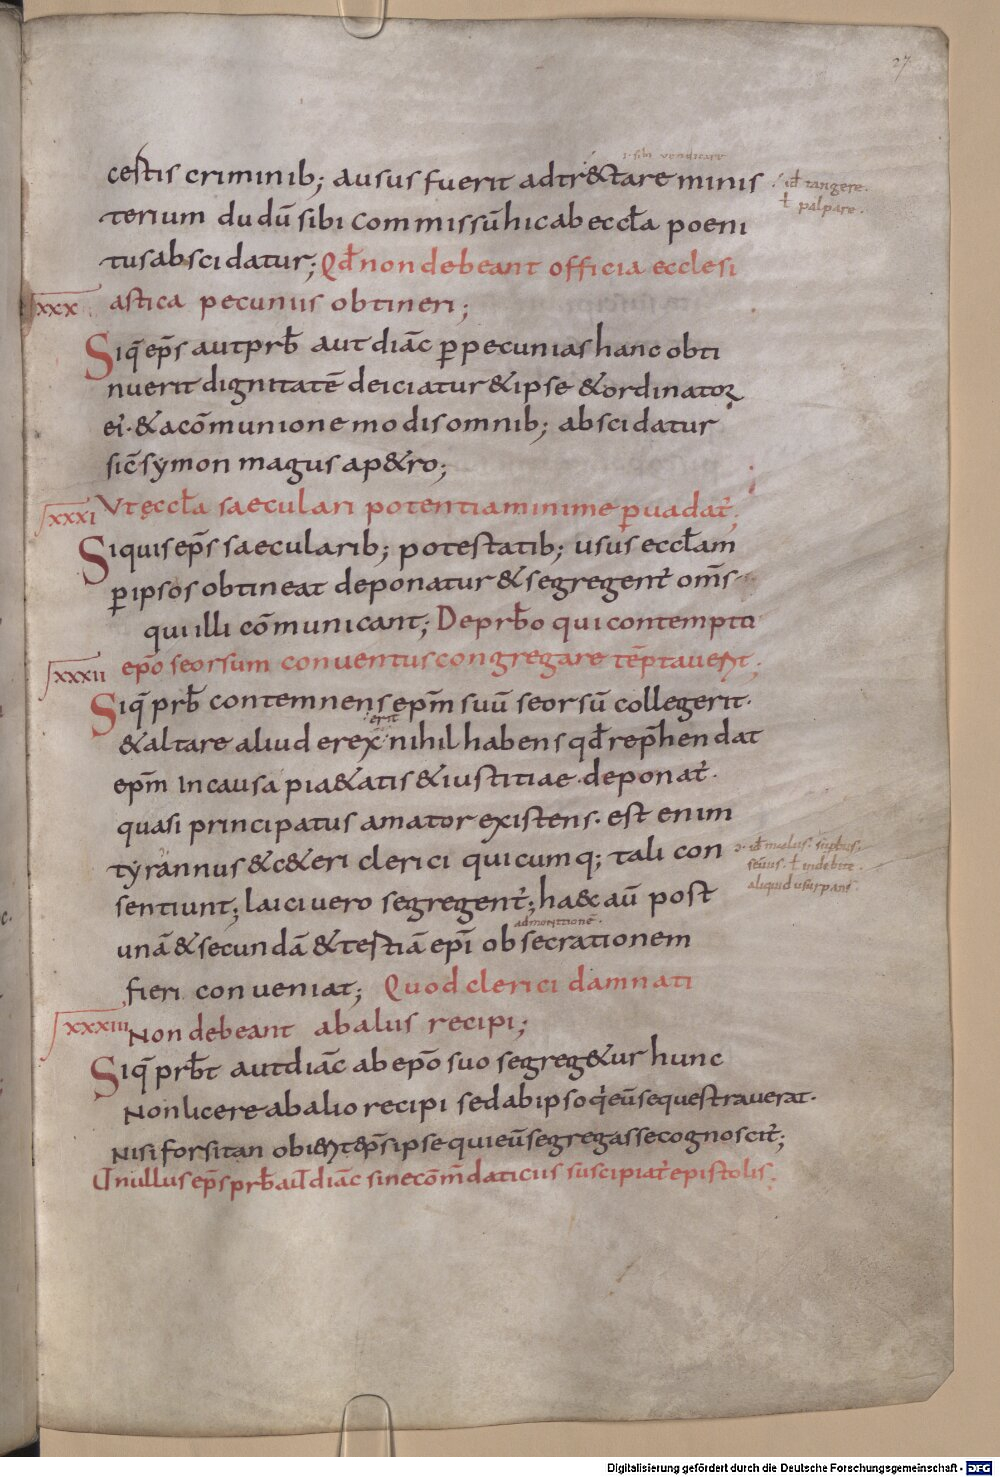 27
.i. sibi vendicare
cestis criminib; ausus fuerit adtr&ctare minis
.i. id̄ tangere.
ł palpare.
terium dudū sibi commissū hic ab eccl̄a poeni
tus abscidatur; Qd̄ non debeant officia ecclesi
xxx astica pecuniis obtineri;
Siq̄ ep̄s aut prb̄ aut diāc ꝑ pecunias hanc obti
nuerit dignitatē deiciatur & ipse & ordinatoꝝ
ei'. & a cōmunione modis omnib; abscidatur
sic̄ symon magus a p&ro;
xxxi Ut ęccl̄a saeculari potentia minime ꝑuadat̄;
Siquis ep̄s saecularib; potestatib; usus eccl̄am
ꝑ ipsos obtineat deponatur & segregent̄ om̄s
qui illi cōmunicant; De prb̄o qui contempto
xxxii ep̄o seorsum conuentus congregare tēptauerit;
Siq̄ prb̄ contemnens ep̄m suū seorsū collegerit.
erit
& altare aliud erex nihil habens qd̄ rep̄hendat
ep̄m in causa pi&atis & iustitiae. deponat̄.
quasi principatus amator existens. est enim
tyrannus & c&eri clerici quicumq; tali con
id̄ malus.
ł indebite.
aliquid usurpans.
sentiunt; laici uero segregent̄; haec aū post
admonitionē.
unā & secundā & tertiā ep̄i obsecrationem
fieri conueniat; Quod clerici damnati
xxxiii Non debeant ab alus recipi;
Siq̄ prb̄t aut diāc ab ep̄o suo segreg&ur hunc
Non licere ab alio recipi sed ab ipso q' eū sequestrauerat.
Nisi forsitan obierit ep̄s ipse qui eū segregasse cognoscit̄;
Ut nullus ep̄s prb̄ aut diāc sine cōm̄daticiis suscipiat̄ epistolis.
Digitalisierung gefördert durch die Deutsche Forschungsgemeinschaft - DFG